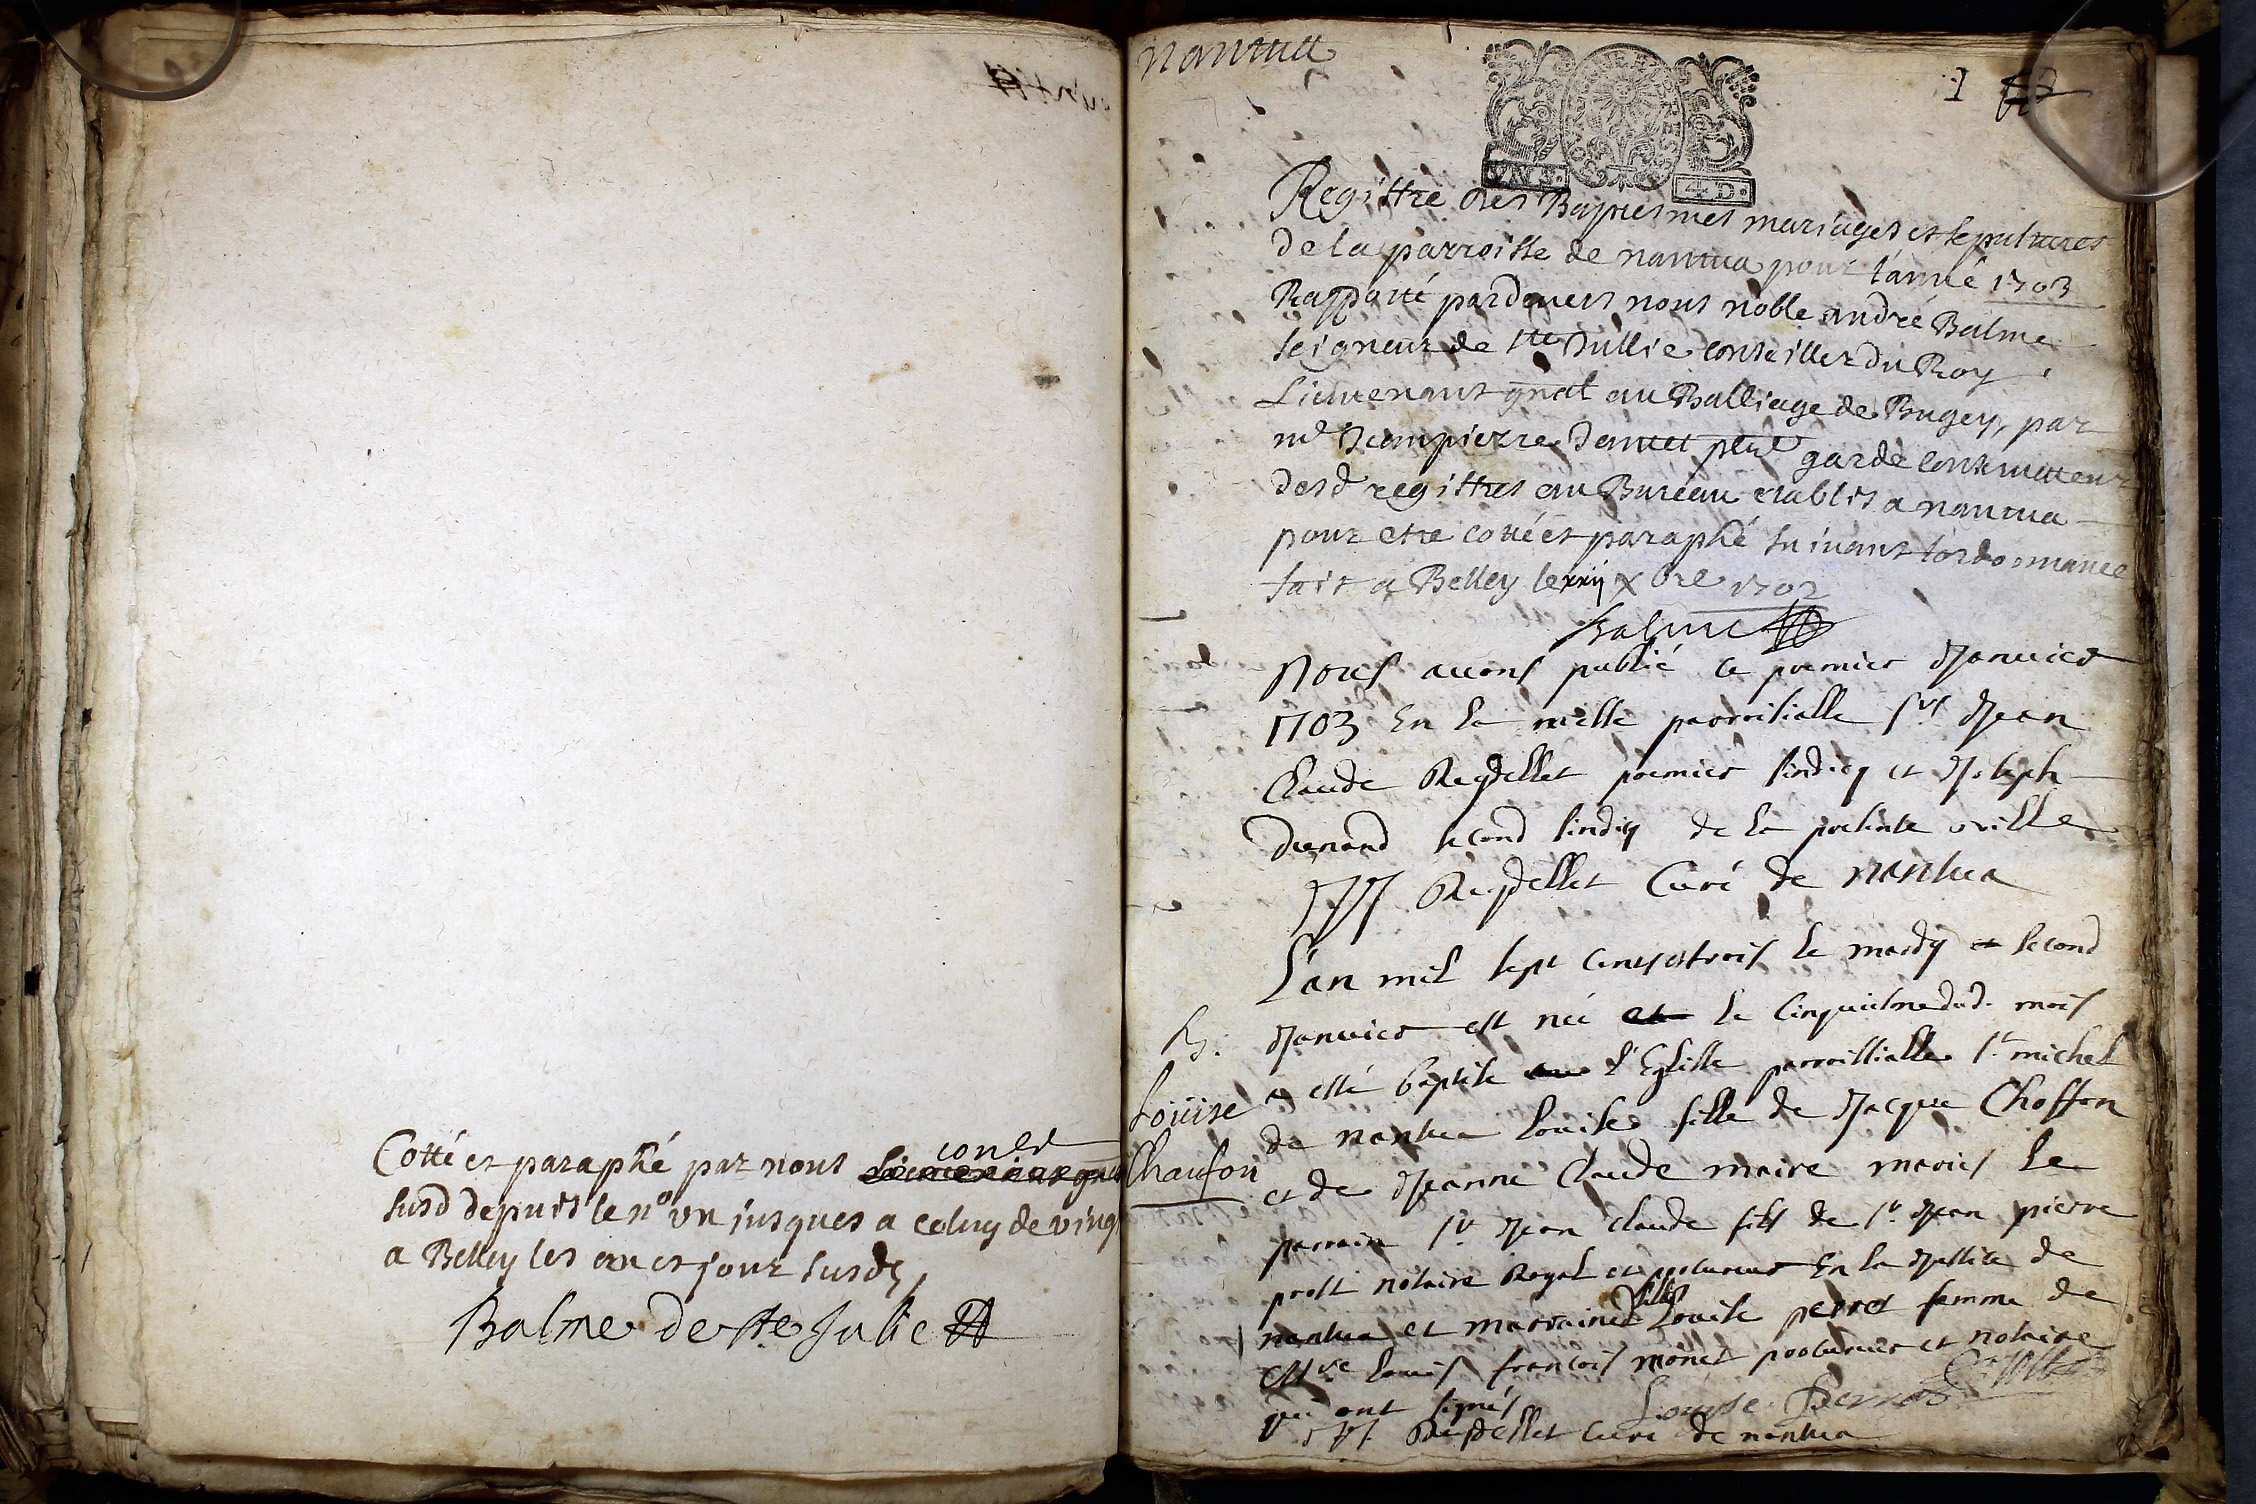 Cotté et paraphé par nous coner
susd depuis le no un jusques a celuy de vingt
a Belley les an et jour susds
Balme de Ste Julie
nantua
1
VN S.
4 D.
Registre des Baptesmes mariages et sepultures
de la parroisse de nantua pour l'anné 1703
Rapporté pardevers nous noble andré Balme
seigneur de Ste Jullie conseiller du Roy
Lieutenant gnal au Balliage de Bugey, par
me Jeanpierre garde conservateur
desd registres au Bureau etablis a nantua
pour etre cotté et paraphé suivant l'ordonnance
fait a Belley le xxij xbre 1702
Balme
Nous avons publié le premier Janvier
1703 En la messe parroissialle srs Jean
Claude Reydellet premier sindiq et Joseph
Dunand second sindiq de la presente ville
Reydellet Curé de nantua
L'an mil sept cents et trois le mardy second
B. Janvier est née le cinquiesme dud. mois
a esté baptisé l'Eglise parroissialle St michel
Loüise
de nantua Louise fille de Jacque Choffon
Chaufon
et de Jeanne Claude maire mariés le
parrain sr Jean claude fils de sr Jean pierre
prost notaire Royal et procureur En la Justice de
nantua et marraine Louise perret femme de
Mre Louis françois monet procureur et notaire
qui ont signés
Louyse Perret
Reydellet curé de nantua